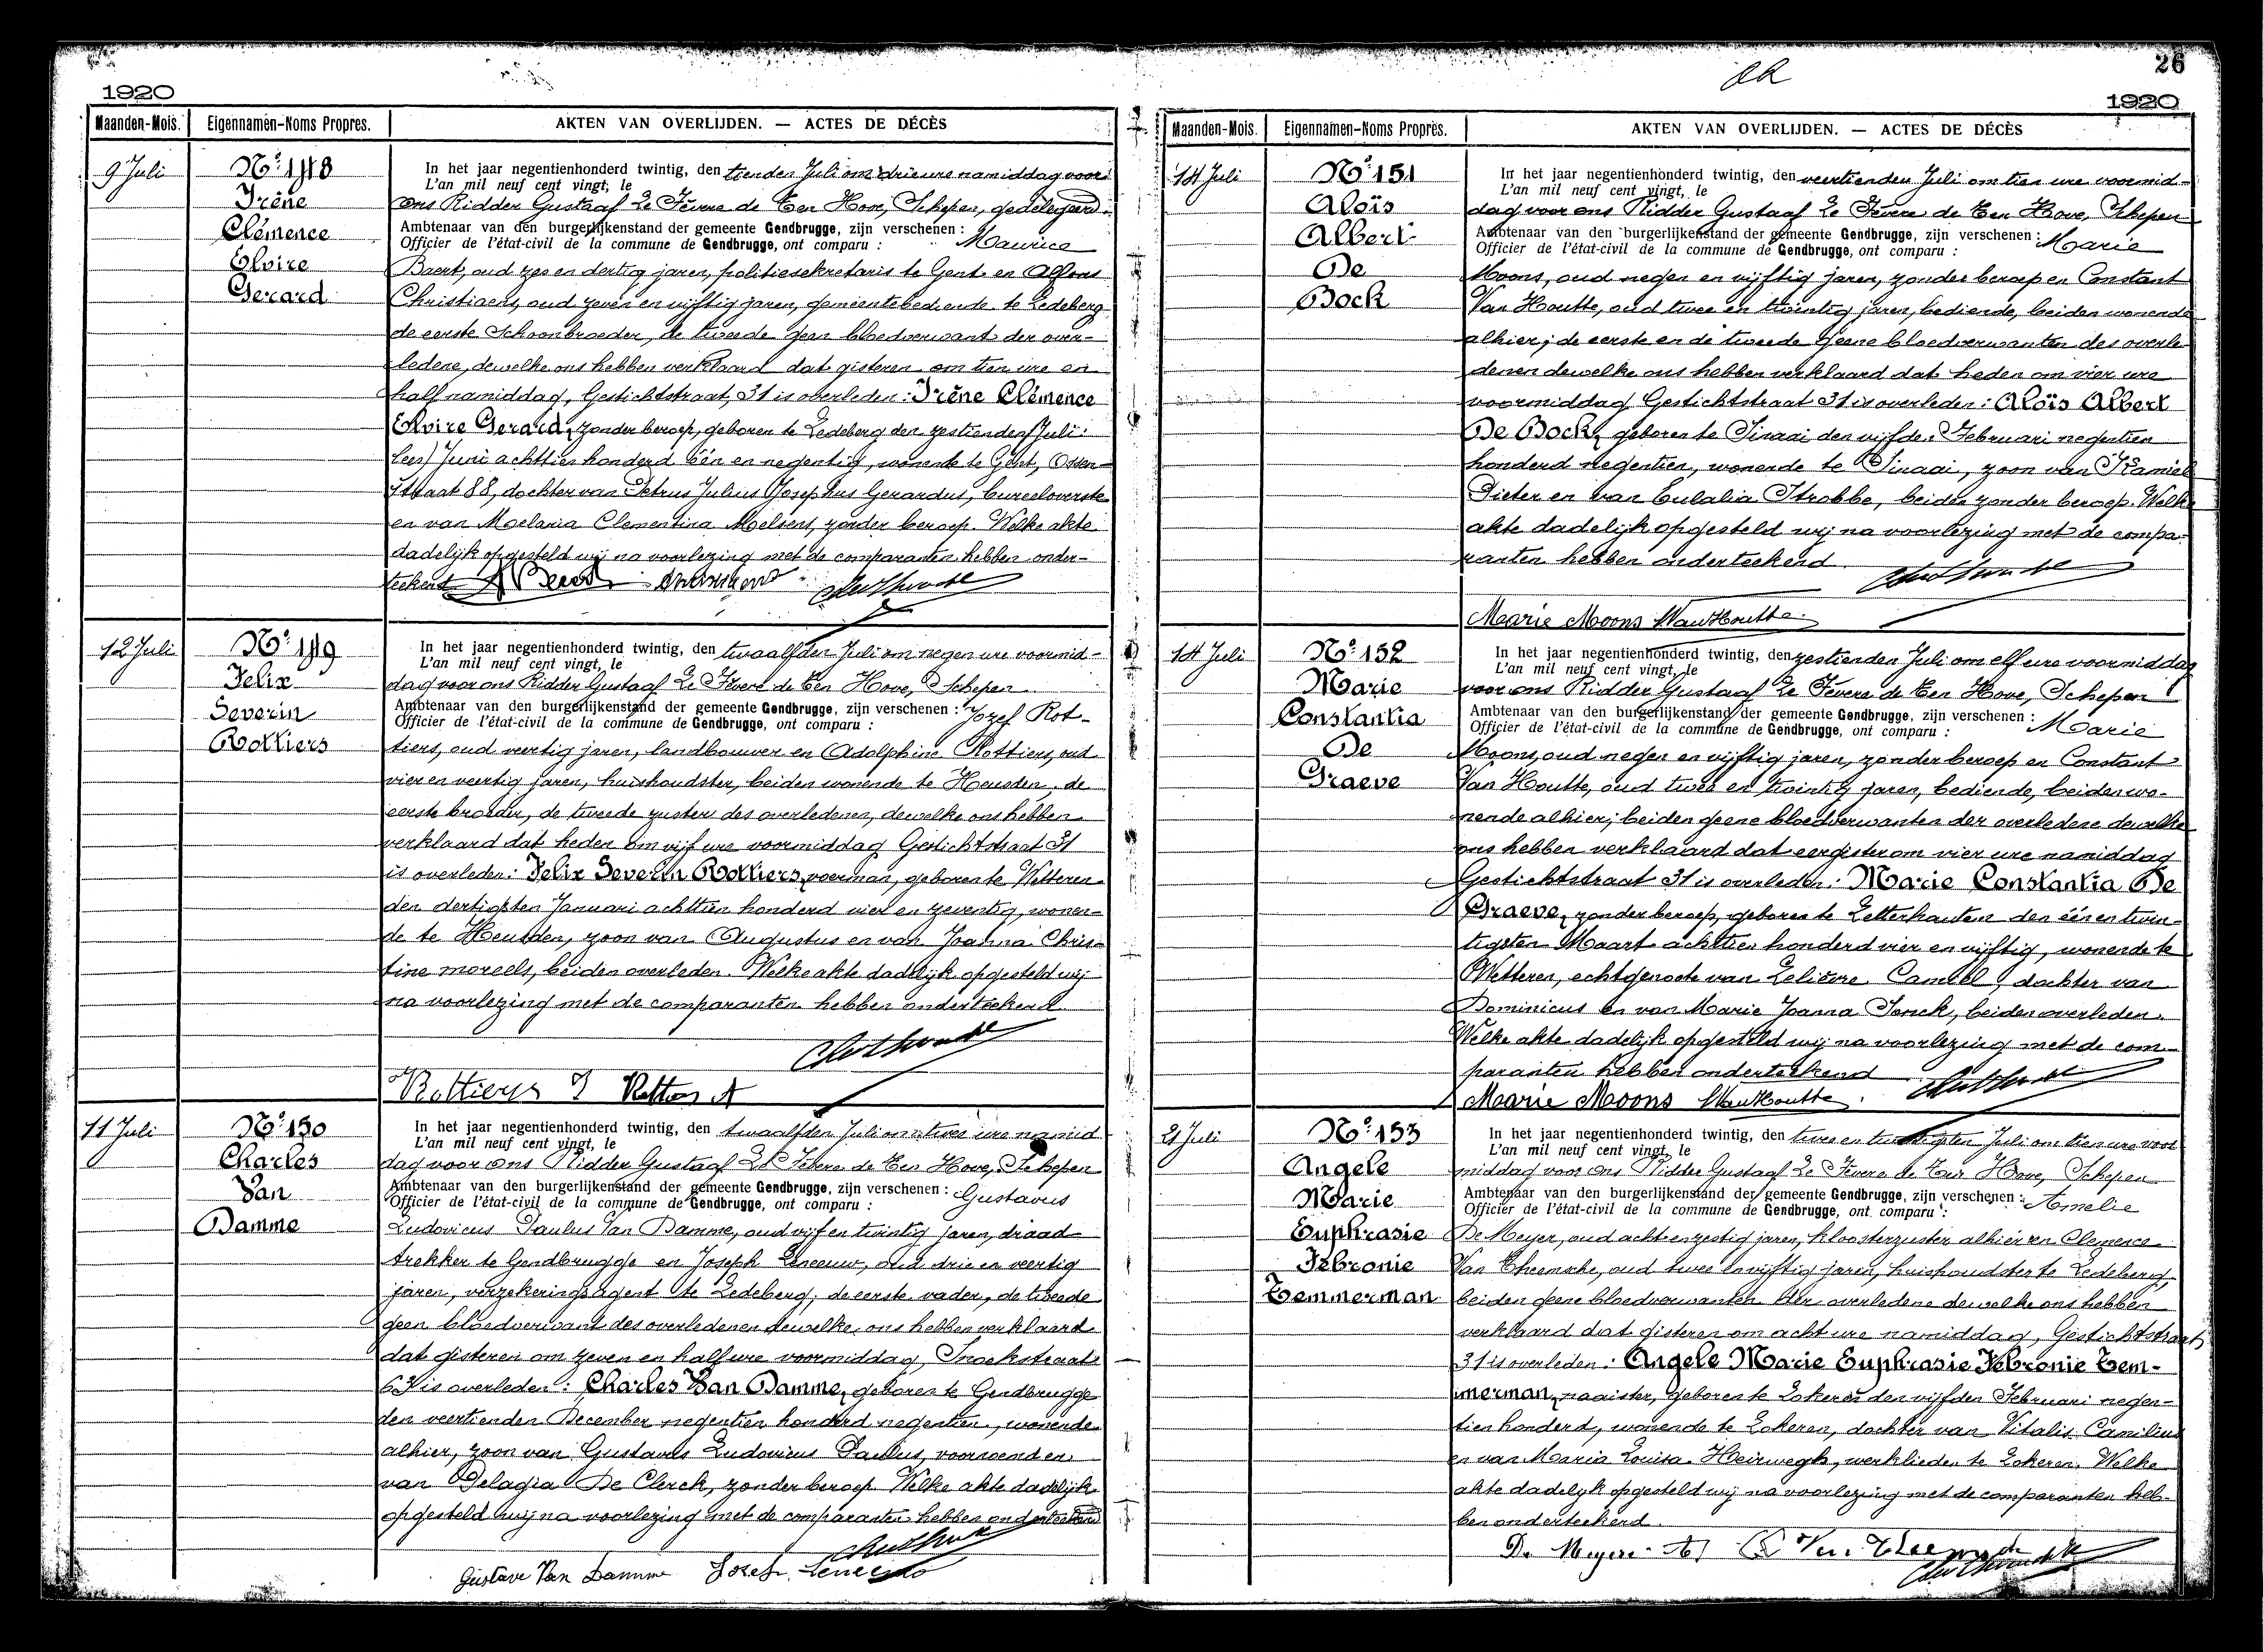 1920
Maanden-Mois. Eigennamen-Noms Propres. AKTEN VAN OVERLIJDEN. — ACTES DE DÉCÈS
9 Juli
Nº 148
Irêne
Clémence
Elvire
Gerard
In het jaar negentienhonderd twintig, den tienden Juli om drie ure namiddag voor
L'an mil neuf cent vingt, le
ons Ridder Gustaaf Le Fèvere de Ten Hove, Schepen, gedelegeerd
Ambtenaar van den burgerlijkenstand der gemeente Gendbrugge, zijn verschenen : Maurice
Officier de l'état-civil de la commune de Gendbrugge, ont comparu :
Baert, oud zes en dertig jaren, politiesekretaris te Gent en Alfons
Christiaens, oud zeven en vijftig jaren, gemeentebediende te Ledeberg
de eerste Schoonbroeder, de tweede geen bloedverwant der over-
ledene, dewelke ons hebben verklaard dat gisteren om tien ure en
half namiddag, Gestichtstraat, 31 is overleden: Irêne Clémence
Elvire Gerard, zonder beroep, geboren te Ledeberg den zestienden Juli
lees) Juni achttien honderd één en negentig, wonende te Gent, Ossen-
straat 88, dochter van Petrus Julius Josephus Gerardus, bureeloverste
en van Melania Clementina Melsens, zonder beroep. Welke akte
dadelijk opgesteld wij na voorlezing met de comparanten hebben onder-
teekend
12 Juli
Nº 149
Felix
Severin
Rottiers
In het jaar negentienhonderd twintig, den twaalfden Juli om negen ure voormid-
L'an mil neuf cent vingt, le
dag voor ons Ridder Gustaaf Le Fèvere de Ten Hove, Schepen
Ambtenaar van den burgerlijkenstand der gemeente Gendbrugge, zijn verschenen : Jozef Rot-
Officier de l'état-civil de la commune de Gendbrugge, ont comparu :
tiers, oud veertig jaren, landbouwer en Adolphine Rottiers, oud
vier en veertig jaren, huishoudster, beiden wonende te Heusden, de
eerste broeder, de tweede zuster des overledenen, dewelke ons hebben
verklaard dat heden om vijf ure voormiddag Gestichtstraat 31
is overleden: Felix Severin Rottiers, voerman, geboren te Wetteren
den dertigsten Januari achttien honderd vier en zeventig, wonen-
de te Heusden, zoon van Augustus en van Joanna Chris-
tine moreels, beiden overleden. Welke akte dadelijk opgesteld wij
na voorlezing met de comparanten hebben onderteekend
Rottiers J Rottiers A
11 Juli
Nº 150
Charles
Van
Damme
In het jaar negentienhonderd twintig, den twaalfden Juli om twee ure namid
L'an mil neuf cent vingt, le
dag voor ons Ridder Gustaaf Le Fèvere de Ten Hove, Schepen
Ambtenaar van den burgerlijkenstand der gemeente Gendbrugge, zijn verschenen : Gustavus
Officier de l'état-civil de la commune de Gendbrugge, ont comparu :
Ludovicus Paulus Van Damme, oud vijf en twintig jaren, draad
trekker te Gendbrugge en Joseph Leneeuw, oud drie en veertig
jaren, verzekeringsagent te Ledeberg, de eerste vader, de tweede
geen bloedverwant des overledenen dewelke ons hebben verklaard
dat gisteren om zeven en half ure voormiddag, Snoekstraat
63 is overleden: Charles Van Damme, geboren te Gendbrugge
den veertienden December negentien honderd negentien, wonende
alhier, zoon van Gustavus Ludovicus Paulus, voornoemd en
van Pelagia De Clerck, zonder beroep. Welke akte dadelijk
opgesteld wij na voorlezing met de comparanten hebben onderteekend
Gustave Van Damme Jozef Leneeuw
26
1920
Maanden-Mois. Eigennamen-Noms Propres. AKTEN VAN OVERLIJDEN. — ACTES DE DÉCÈS
14 Juli
Nº 151
Aloïs
Albert
De
Bock
In het jaar negentienhonderd twintig, den veertienden Juli om tien ure voormid-
L'an mil neuf cent vingt, le
dag voor ons Ridder Gustaaf Le Fèvere de Ten Hove, Schepen
Ambtenaar van den burgerlijkenstand der gemeente Gendbrugge, zijn verschenen : Marie
Officier de l'état-civil de la commune de Gendbrugge, ont comparu :
Moons, oud negen en vijftig jaren, zonder beroep en Constant
Van Houtte, oud twee en twintig jaren, bediende, beiden wonende
alhier; de eerste en de tweede geene bloedverwanten des overle
denen dewelke ons hebben verklaard dat heden om vier ure
voormiddag Gestichtstraat 31 is overleden: Aloïs Albert
De Bock, geboren te Sinaai den vijfden Februari negentien
honderd negentien, wonende te Sinaai, zoon van Kamiel
Pieter en van Eulalia Strobbe, beiden zonder beroep. Welke
akte dadelijk opgesteld wij na voorlezing met de compa-
ranten hebben onderteekend
Marie Moons VanHoutte
14 Juli
Nº 152
Marie
Constantia
De
Graeve
In het jaar negentienhonderd twintig, den zestienden Juli om elf ure voormiddag
L'an mil neuf cent vingt, le
voor ons Ridder Gustaaf Le Fèvere de Ten Hove, Schepen
Ambtenaar van den burgerlijkenstand der gemeente Gendbrugge, zijn verschenen : Marie
Officier de l'état-civil de la commune de Gendbrugge, ont comparu :
Moons, oud negen en vijftig jaren, zonder beroep en Constant
Van Houtte, oud twee en twintig jaren, bediende, beiden wo-
nende alhier; beiden geene bloedverwanten der overledene dewelke
ons hebben verklaard dat eergister om vier ure namiddag
Gestichtstraat 31 is overleden: Marie Constantia De
Graeve, zonder beroep, geboren te Letterhautem den één en twin-
tigsten Maart achttien honderd vier en vijftig, wonende te
Wetteren, echtgenoote van Leliavre Camiel, dochter van
Dominicus en van Marie Joanna Jonck, beiden overleden.
Welke akte dadelijk opgesteld wij na voorlezing met de com-
paranten hebben onderteekend
Marie Moons VanHoutte
21 Juli
Nº 153
Angele
Marie
Euphrasie
Febronie
Temmerman
In het jaar negentienhonderd twintig, den twee en twintigsten Juli om tien ure voor
L'an mil neuf cent vingt, le
middag voor ons Ridder Gustaaf Le Fèvere de Ten Hove, Schepen
Ambtenaar van den burgerlijkenstand der gemeente Gendbrugge, zijn verschenen : Amelie
Officier de l'état-civil de la commune de Gendbrugge, ont comparu :
De Meyer, oud acht en zestig jaren, kloosterzuster alhier en Clemence
Van Theemsche, oud twee en vijftig jaren, huishoudster te Ledeberg,
beiden geene bloedverwanten der overledene dewelke ons hebben
verklaard dat gisteren om acht ure namiddag, Gestichtstraat
31 is overleden: Angele Marie Euphrasie Febronie Tem-
merman, naaister, geboren te Lokeren den vijfden Februari negen-
tien honderd, wonende te Lokeren, dochter van Vitalis Camilius
en van Maria Louisa Heirwegh, werklieden te Lokeren. Welke
akte dadelijk opgesteld wij na voorlezing met de comparanten heb-
ben onderteekend